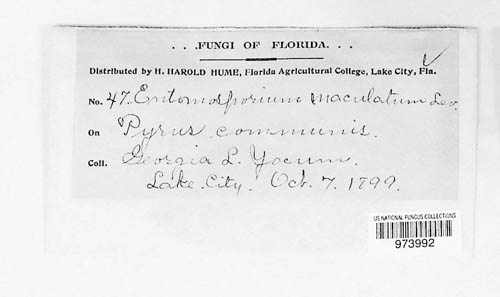 . . .FUNGI OF FLORIDA. . .
Distributed by H. HAROLD HUME, Florida Agricultural College, Lake City, Fla.
No. 47. Entomosporium maculatum Lev.
On Pyrus communis.
Coll. Georgia L. Yocum.
Lake City. Oct. 7. 1899.
US NATIONAL FUNGUS COLLECTIONS
973992